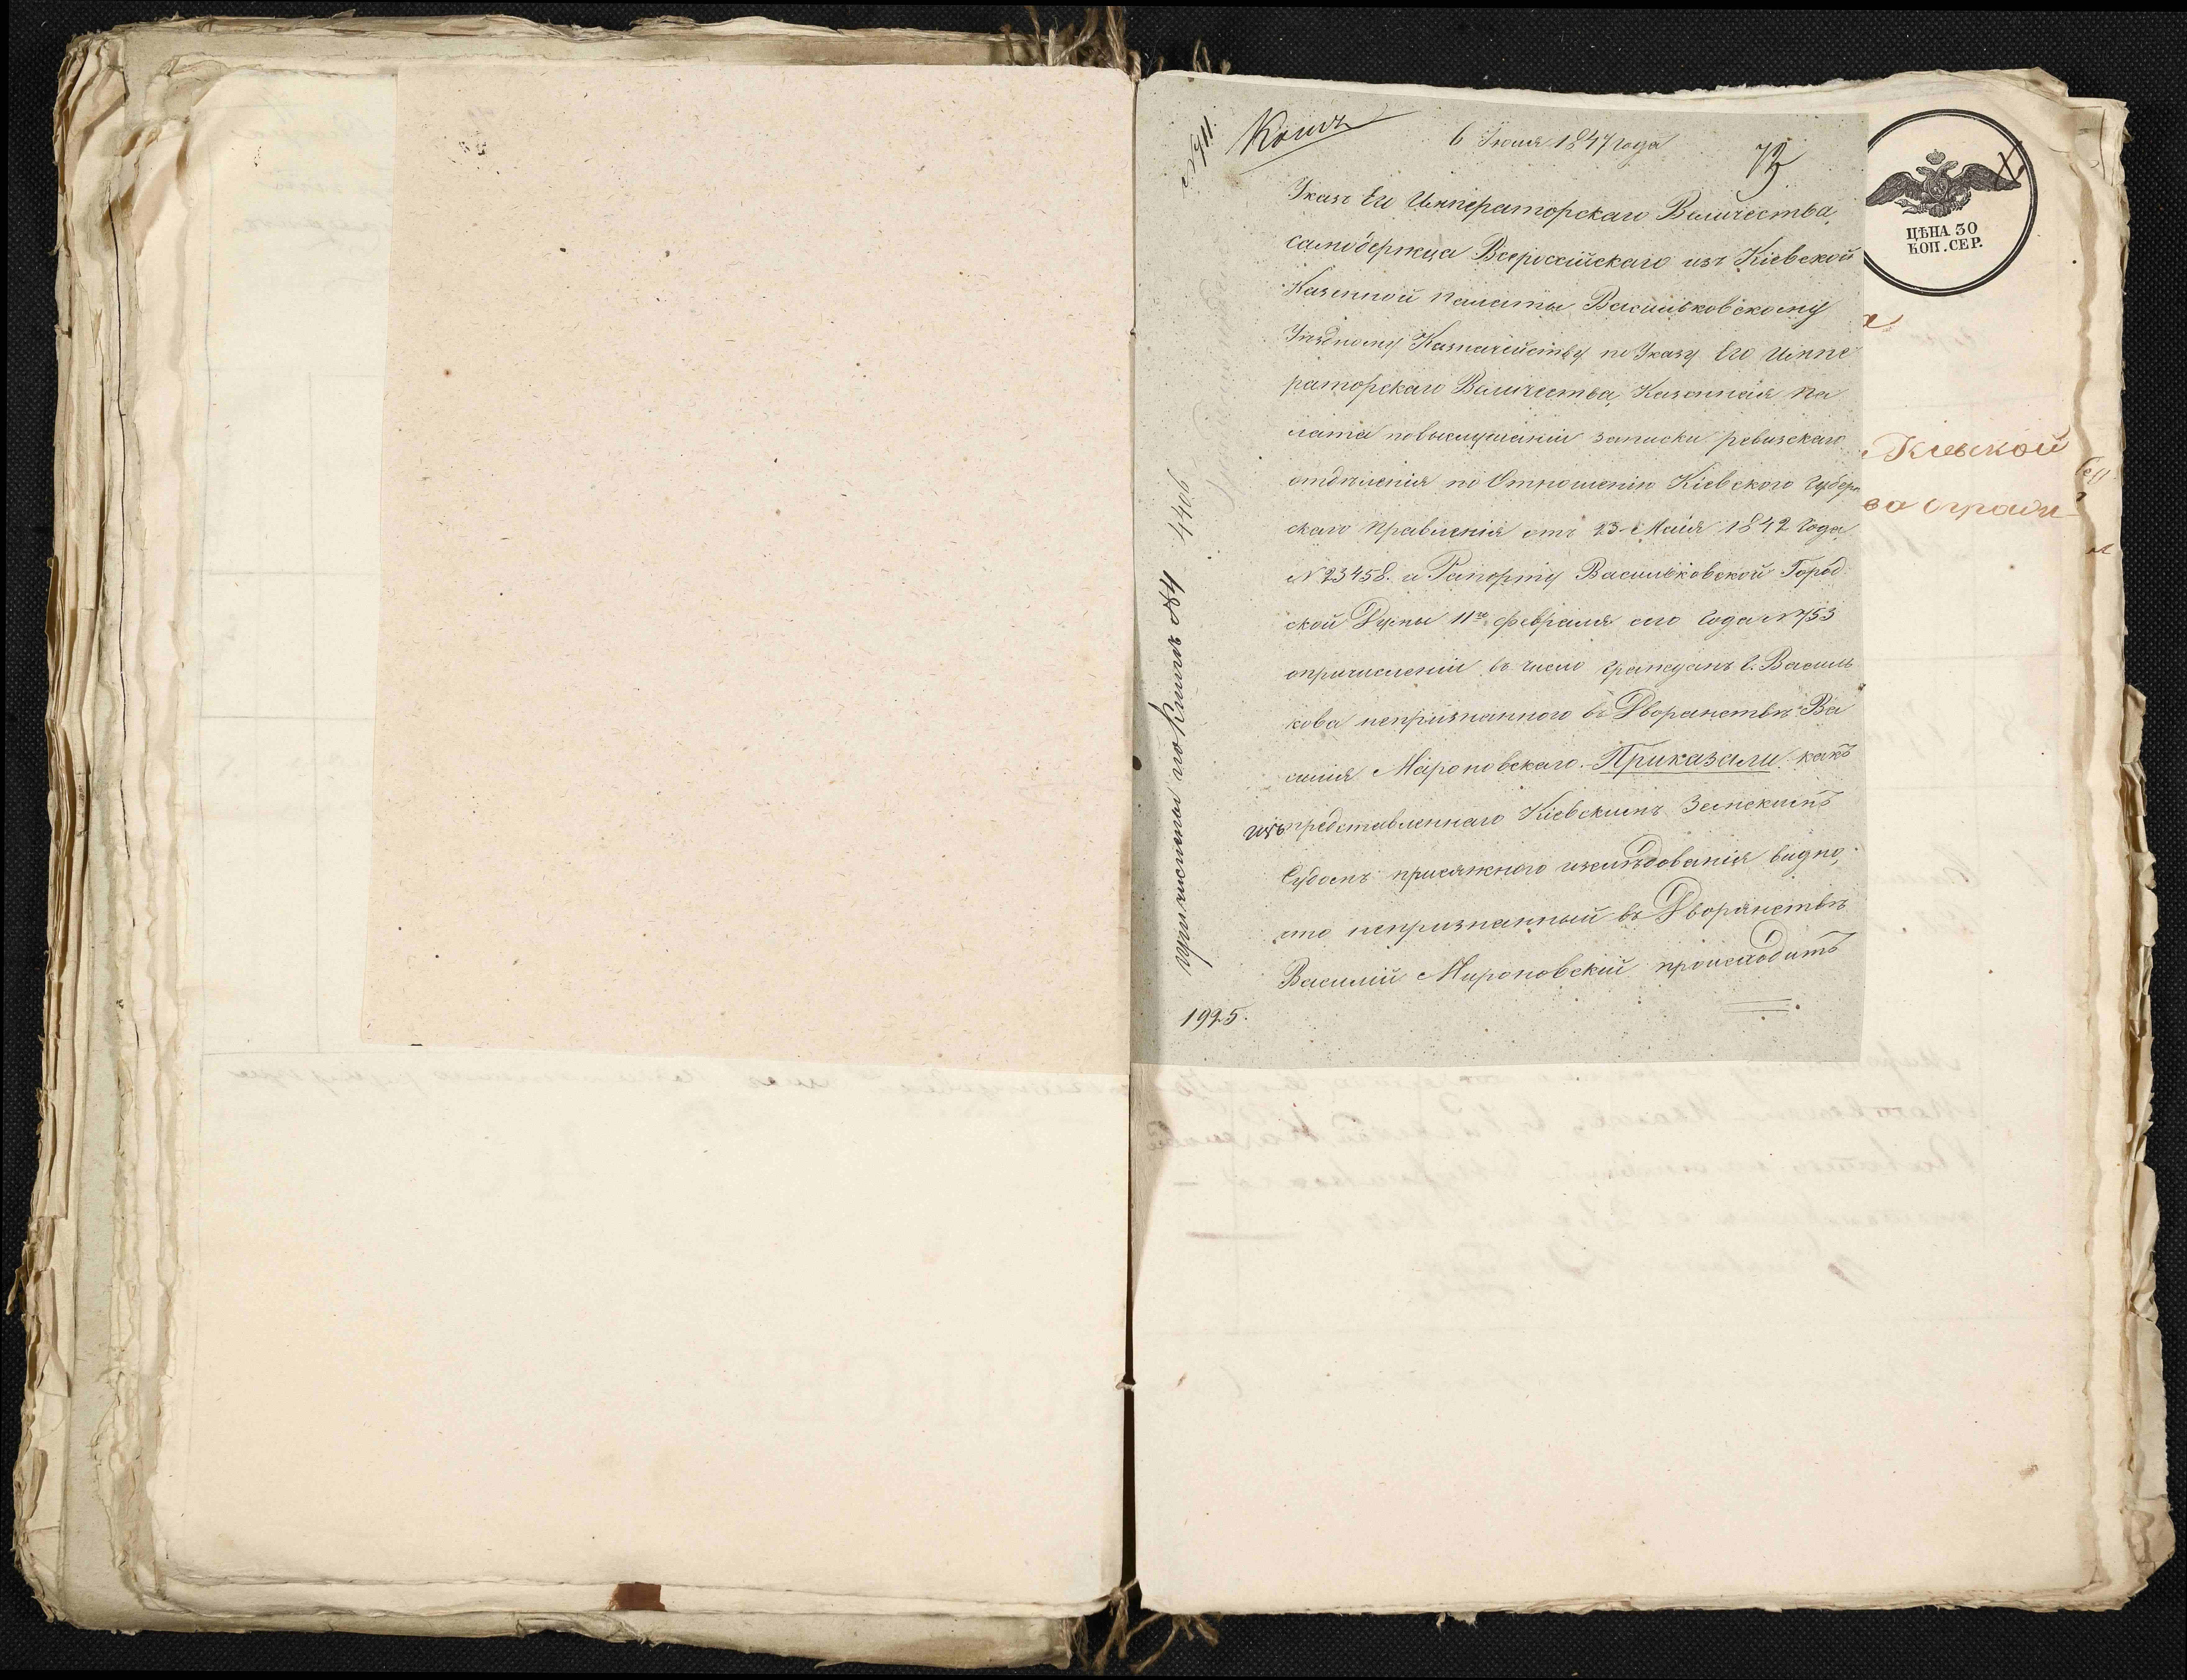 № 911.
Копія
6 Іюля 1847 года
73
Указъ Его Императорскаго Величества,
самодержца Всеросійскаго изъ Кіевской
Казенной палаты Васильковскому
Уѣздному Казначейству по Указу Его Импе
раторскаго Величества, Казенная Па
лата повыслушаніи записки ревизскаго
отдѣленія по Отношенію Кіевского Губерн
скаго Правленія отъ 23 Маія 1842 года
№ 23458. и Рапорту Васильковской Город
ской Думы 11го февраля сего года № 753
опричисленіи въ число гражданъ г. Василь
кова непризнанного въ Дворанствѣ Ва
силія Мироновскаго. Приказали какъ
изъ представленнаго Кіевскимъ Земскимъ
Судомъ присяжного изслѣдованія видно,
что непризнанный въ Дворянствѣ
Василій Мироновскій происходитъ
1925.
причислены по Книгѣ 84 4406
ЦѢНА 30
КОП. СЕР.
Кіевской